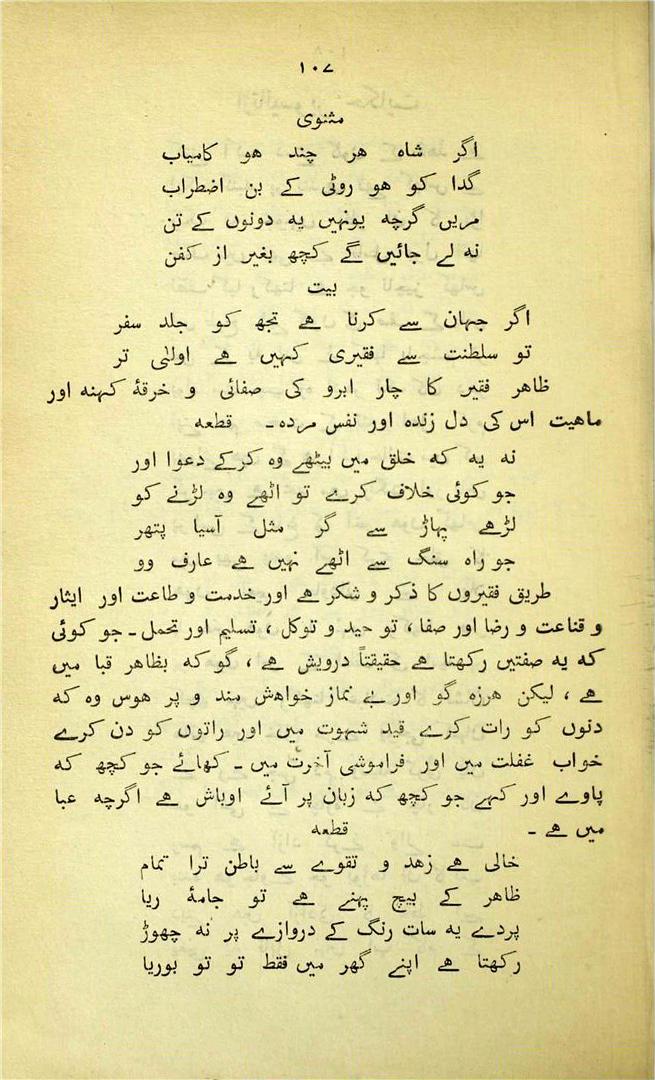 ۱۰۷
مثنوی
اگر شاہ ھر چند ھو کامیاب
گدا کو ھو روٹی کے بن اضطراب
مریں گرچہ یونہیں یہ دونوں کے تن
نہ لے جائیں گے کچھ بغیر از کفن
بیت
اگر جہان سے کرنا ھے تجھ کو جلد سفر
تو سلطنت سے فقیری کہیں ھے اولیٰ تر
ظاھر فقیر کا چار ابرو کی صفائی و خرقۂ کہنہ اور
ماھیت اس کی دل زندہ اور نفس مردہ ۔ قطعہ
نہ یہ کہ خلق میں بیٹھے وہ کرکے دعوا اور
جو کوئی خلاف کرے تو اٹھے وہ لڑنے کو
لڑھے پہاڑ سے گر مثل آسیا پتھر
جو راہ سنگ سے اٹھے نہیں ھے عارف وو
طریق فقیروں کا ذکر و شکر ھے اور خدمت و طاعت اور ایثار
و قناعت و رضا اور صفا ، توحید و توکل ، تسلیم اور تحمل ۔ جو کوئی
کہ یہ صفتیں رکھتا ھے حقیقتاً درویش ھے ، گو کہ بظاھر قبا میں
ھے ، لیکن ھرزہ گو اور بے نماز خواھش مند و پر ھوس وہ کہ
دنوں کو رات کرے قید شہوت میں اور راتوں کو دن کرے
خواب غفلت میں اور فراموشی آخرت میں ۔ کھائے جو کچھ کہ
پاوے اور کہے جو کچھ کہ زبان پر آئے اوباش ھے اگرچہ عبا
میں ھے ۔ قطعہ
خالی ھے زھد و تقوے سے باطن ترا تمام
ظاھر کے بیچ پہنے ھے تو جامۂ ریا
پردے یہ سات رنگ کے دروازے پر نہ چھوڑ
رکھتا ھے اپنے گھر میں فقط تو تو بوریا